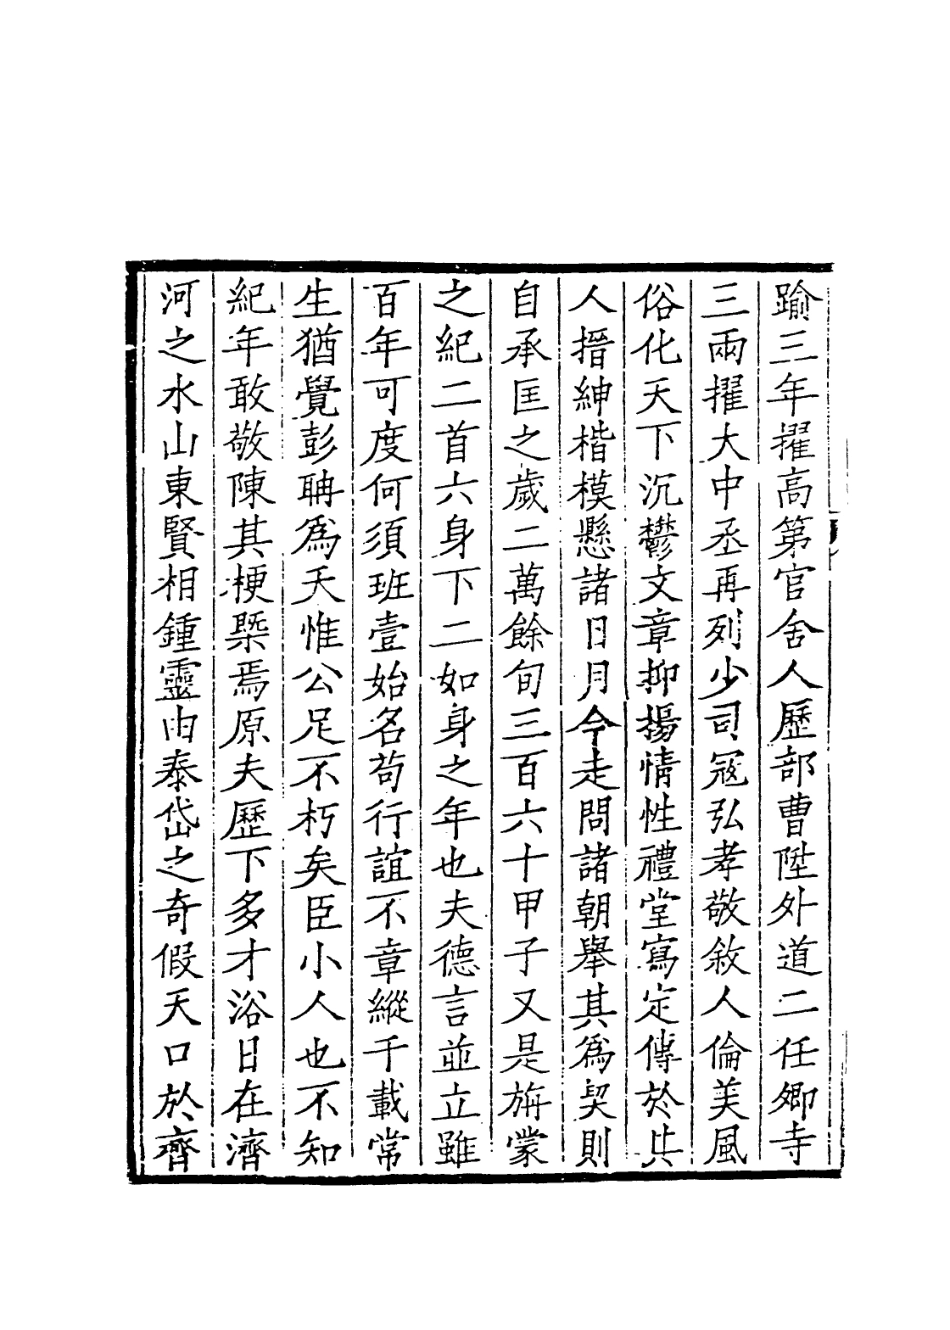 踰三年擢高第官舍人歷部曹陞外道二任卿寺
三兩擢大中丞再列少司寇弘孝敬敘人倫美風
俗化天下沉鬱文章抑揚情性禮堂寫定傳於其
人搢紳楷模懸諸日月今走問諸朝舉其為契則
自承匡之歲二萬餘旬三百六十甲子又是旃蒙
之紀二首六身下二如身之年也夫德言並立雖
百年可度何須班壹始名苟行誼不章縱千載常
生猶覺彭聃為夭惟公足不朽矣臣小人也不知
紀年敢敬陳其梗槩焉原夫歷下多才浴日在濟
河之水山東賢相鍾靈由泰岱之奇假天口於齊